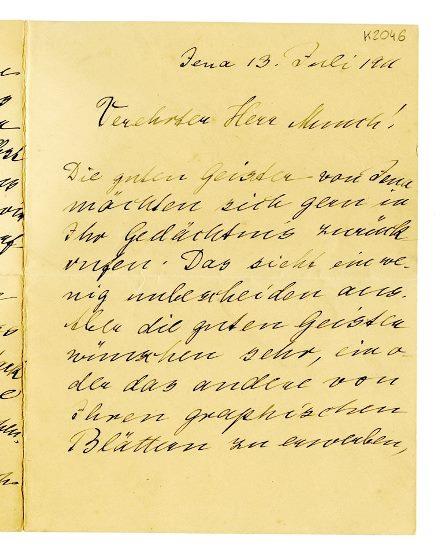 K2046
Jena 13. Juli 191
Verehrter Herr Munch!
Die guten Geister von Jena
möchten sich gern in
Ihr Gedächtnis zurück
rufen. Das sieht ein we-
nig unbescheiden aus.
Aber die guten Geister
wünschen sehr, ein o-
der das andere von
Ihren graphischen
Blättern zu erwerben,